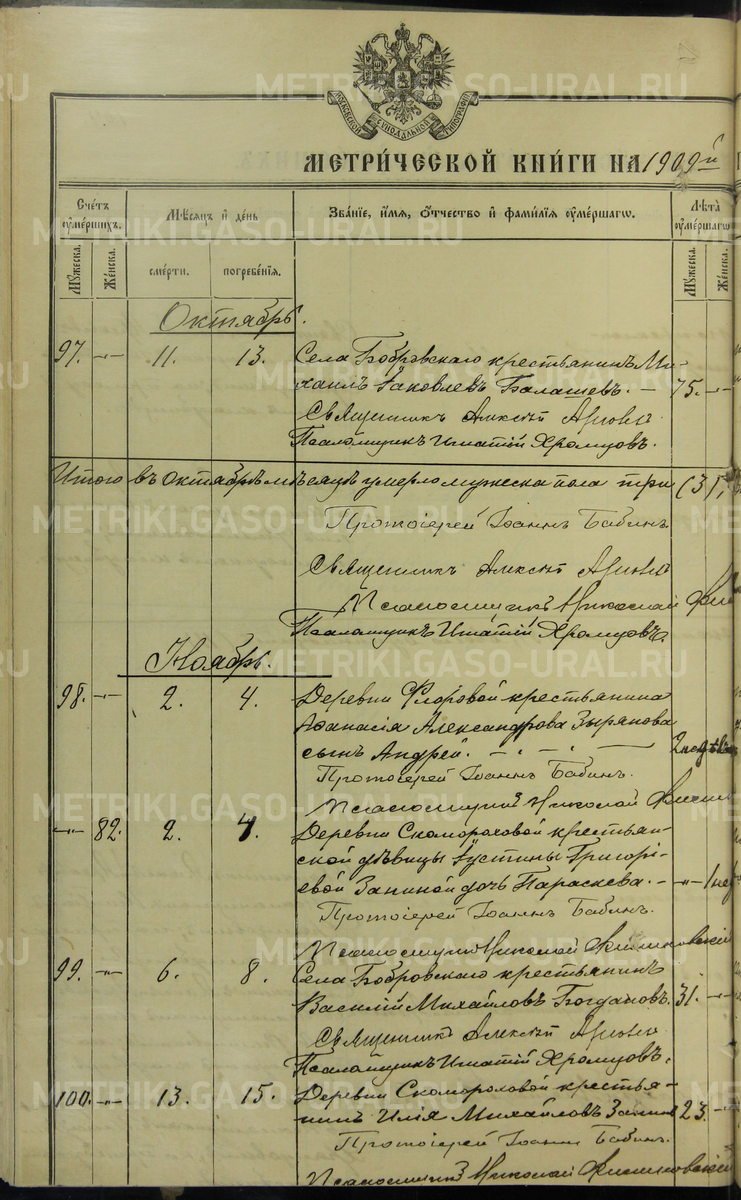 МЕТРИЧЕСКОЙ КНИГИ НА 1909й
Счетъ ѹмершихъ.
Мѣсяцъ и день
Званїе, имя, ѻтчество и фамилїя ѹмершагѡ.
Лѣта ѹмершагѡ
Мꙋжеска.
Женска.
смерти.
погребенїя.
Мꙋжеска.
Женск
Октябрь.
97. -„- 11. 13. Села Бобровскаго крестьянинъ Ми-
хаилъ Яковлевъ Балашевъ. - 75. -„-
Священникъ Алексѣй
Псаломщикъ Игнатій Храмцовъ.
Итого въ октябрѣ мѣсяцѣ умерло мужеска пола три (3),
Протоіерей Іоаннъ Бабинъ
Священникъ Алексѣй
Псаломщикъ Николай
Псаломщикъ Игнатій Храмцовъ.
Ноябрь.
98. -„- 2. 4. Деревни Фloровой крестьянина
Аѳанасія Александрова Зырянова
сынъ Андрей. - 2 недѣли
Протоіерей Іоаннъ Бабинъ.
Псаломщикъ Николай
-„- 82. 2. 4. Деревни Скомороховой крестьян-
ской дѣвицы Іустины Григорі-
евой Запиной дочь Параскева. - -„- 1 нед
Протоіерей Іоаннъ Бабинъ.
Псаломщикъ Николай
99. -„- 6. 8. Села Бобровскаго крестьянинъ
Василій Михайловъ Богдановъ. 31. -„-
Священникъ Алексѣй
Псаломщикъ Игнатій Храмцовъ.
100. -„- 13. 15. Деревни Скомороховой крестья-
нинъ Илія Михайловъ 23. -„-
Протоіерей Іоаннъ Бабинъ.
Псаломщикъ Николай